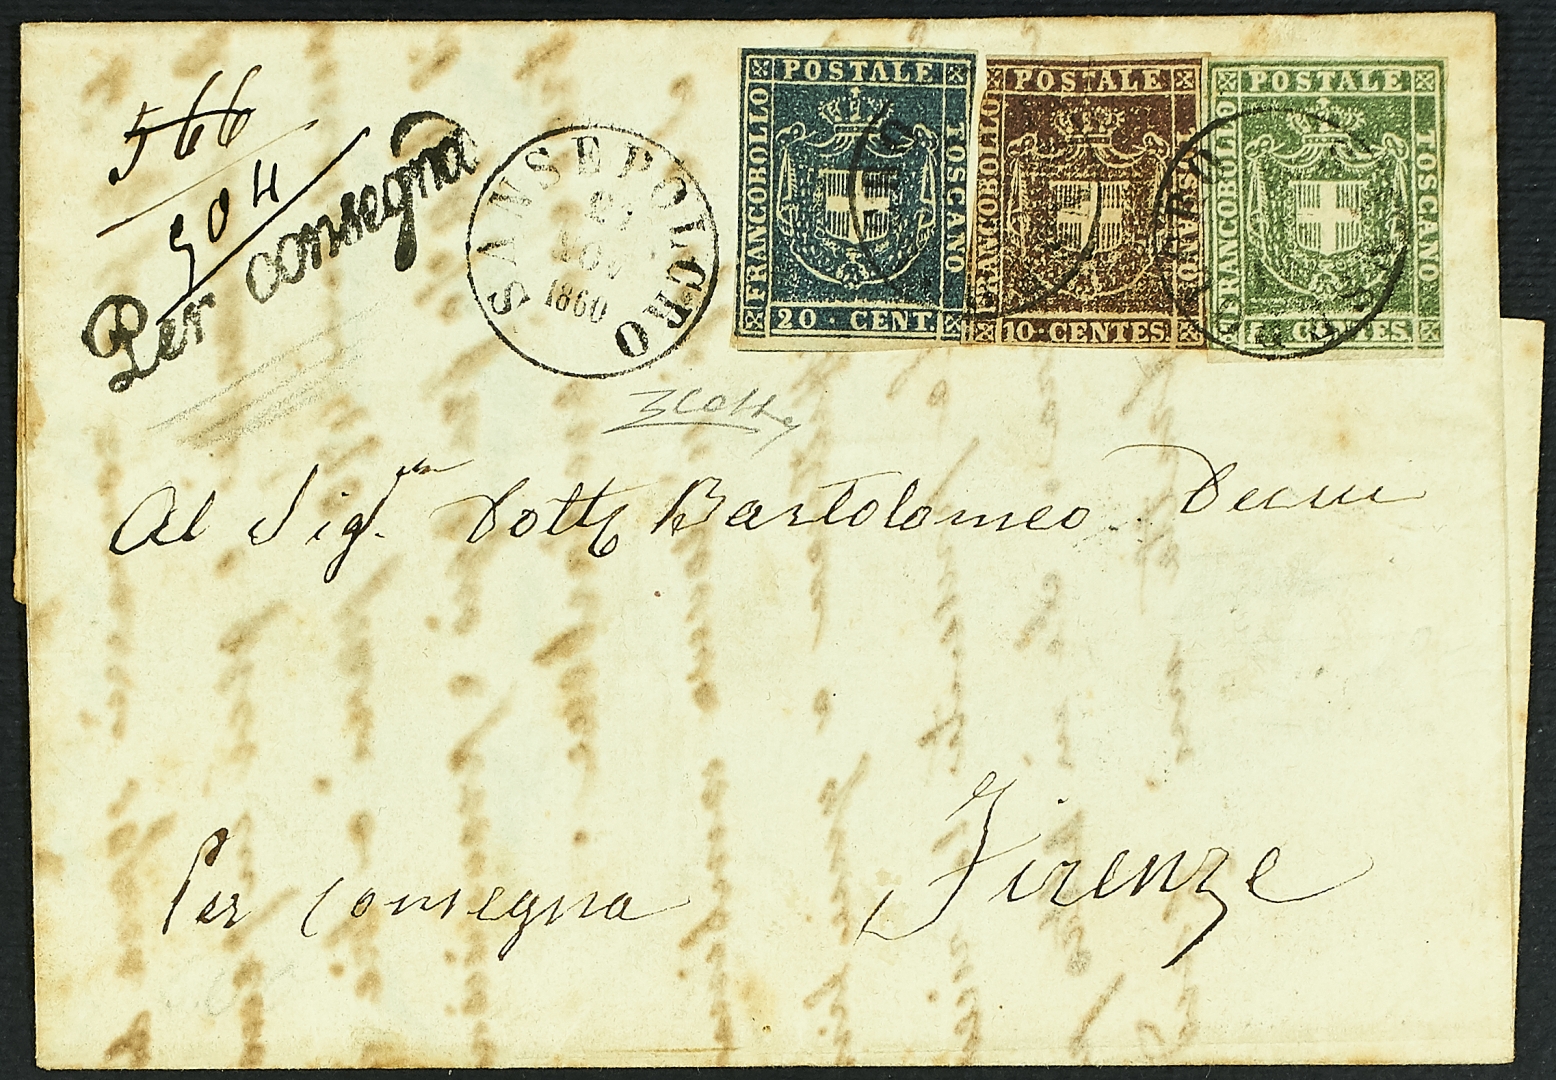 566
904
Per consegna
SANSEPOLCRO
NOV
1860
POSTALE
FRANCOBOLLO
TOSCANO
20 · CENT.
POSTALE
FRANCOBOLLO
TOSCANO
10 · CENTES.
POSTALE
FRANCOBOLLO
TOSCANO
5 · CENTES.
Al Sig.r Dott. Bartolomeo
Per consegna
Firenze